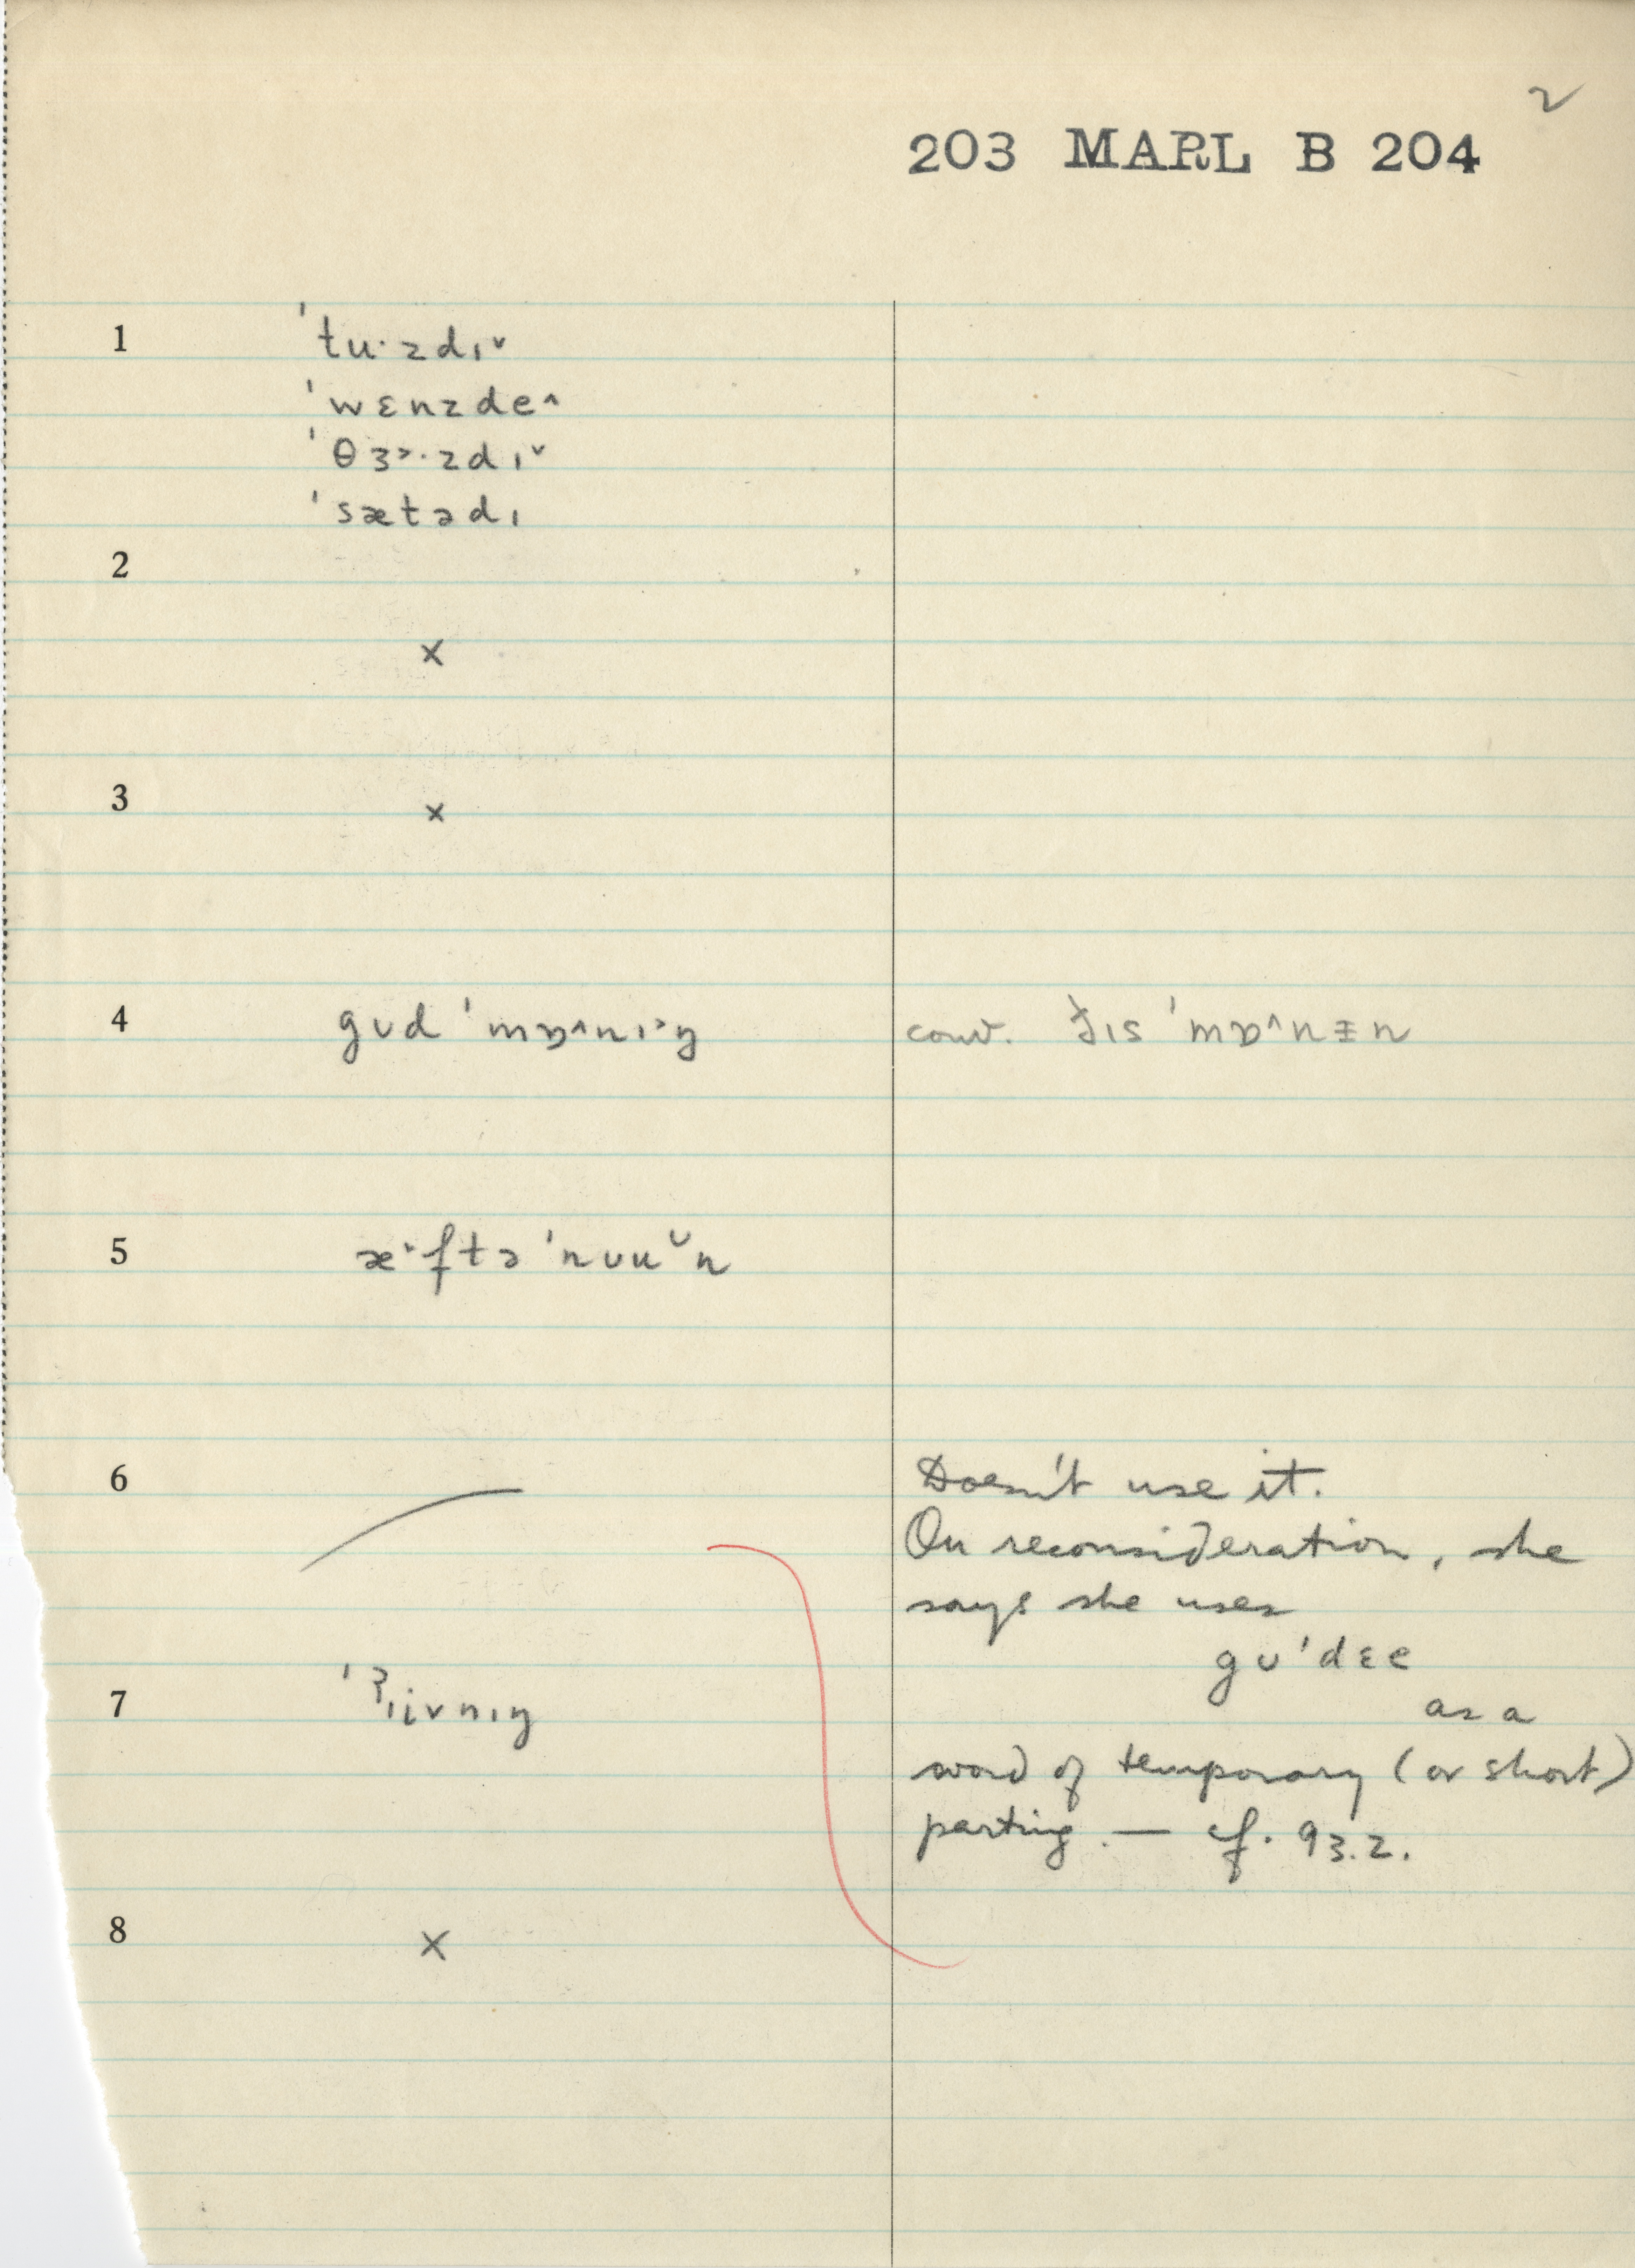 2
203 MARL B 204
1 ˈtu·zdɪ˅
ˈwɛnzde^
ˈθɜ˃·zdɪ˅
ˈsætədɪ
2
×
3 ×
4 gʊd ˈmɒ^nɪ˃ŋ conv. ðɪs ˈmɒ^nɪn
5 æ˔ftəˈnʊu˅n
6 Doesn't use it.
On reconsideration, she
says she uses
gʊˈdɛe
as a
7 ˈʔɪivnɪŋ
word of temporary (or short)
parting. — cf. 93.2.
8 ×